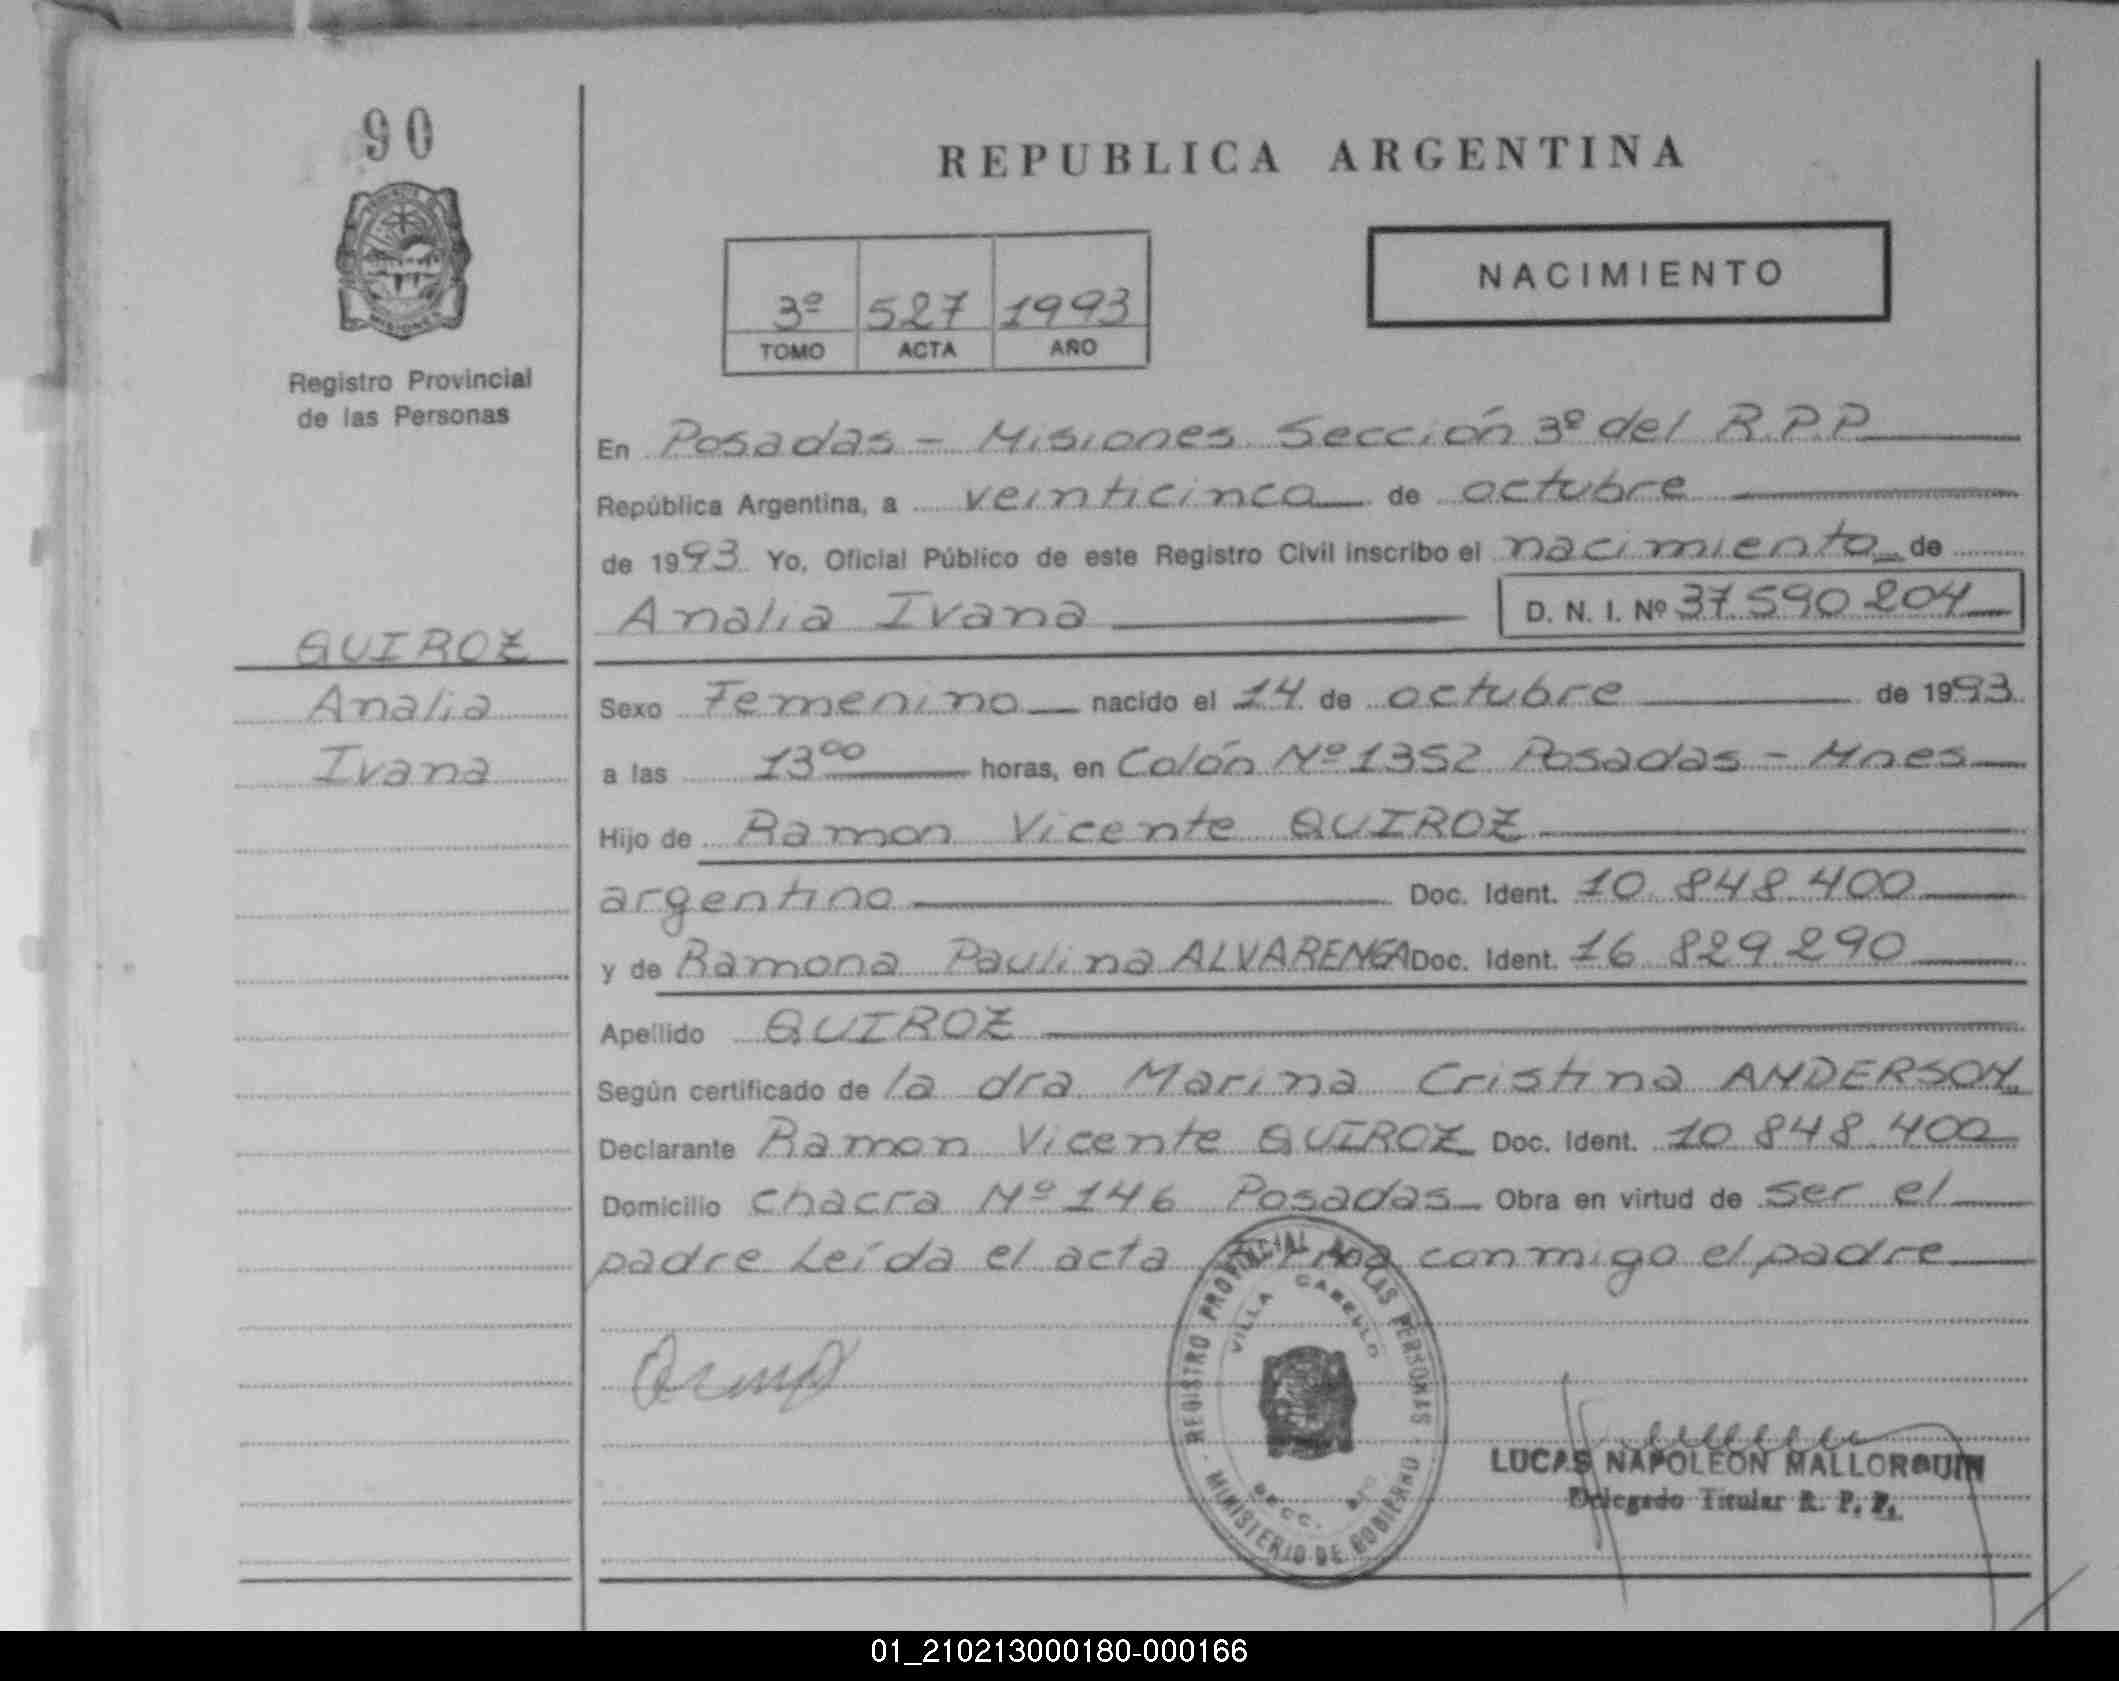 90
REPUBLICA ARGENTINA
NACIMIENTO
3º 527 1993
TOMO ACTA AÑO
Registro Provincial
de las Personas
MISIONES
En Posadas - Misiones Sección 3º del R.P.P
República Argentina, a veinticinco de octubre
de 1993 Yo, Oficial Público de este Registro Civil inscribo el nacimiento de
Analia Ivana D. N. I. Nº 37.590.204
QUIROZ
Analia
Ivana
Sexo Femenino nacido el 14 de octubre de 1993
a las 13⁰⁰ horas, en Colón Nº 1352 Posadas - Mnes
Hijo de Ramon Vicente QUIROZ
argentino Doc. Ident. 10.848.400
y de Ramona Paulina ALVARENGA Doc. Ident. 16.829.290
Apellido QUIROZ
Según certificado de la dra Marina Cristina ANDERSON
Declarante Ramon Vicente QUIROZ Doc. Ident. 10.848.400
Domicilio chacra Nº 146 Posadas Obra en virtud de ser el
padre Leída el acta firma conmigo el padre
REGISTRO PROVINCIAL DE LAS PERSONAS
VILLA CABELLO
SECC.
MINISTERIO DE GOBIERNO
LUCAS NAPOLEON MALLORQUIN
Delegado Titular R. P. P.
01_210213000180-000166